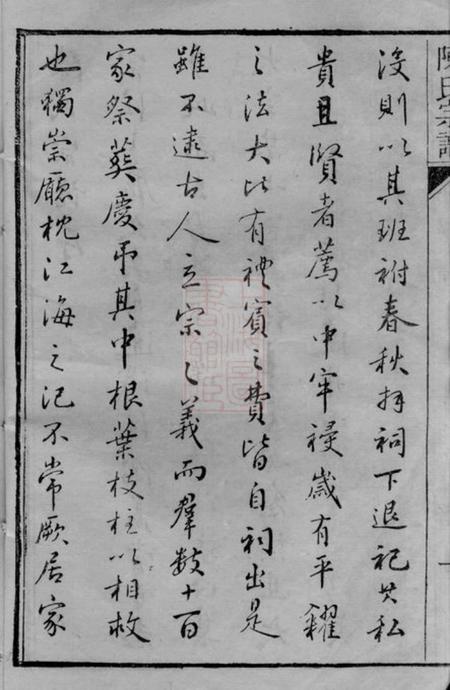 陳氏宗譜
沒則以其班祔春秋拜祠下退祀其私
貴且賢者薦以中牢祲歲有平糴
之法大比有禮賓之費皆自祠出是
雖不逮古人立宗之義而羣數十百
家祭葬慶弔其中根葉枝柱以相救
也獨崇廳枕江海之汜不常厥居家